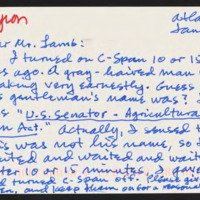 Atla
Jan
ar Mr. Lamb:
I turned on C-Span 10 or 15
s ago. A gray-haired man
aking very earnestly. Guess
s gentleman's name was?
s "U.S. Senator - Agricultura
n Act." Actually, I sensed t
is was not his name, so I
aited and waited and waite
ter 10 or 15 minutes, I gave
d turned C-Span off. Please give
en, and keep them on for a reasona